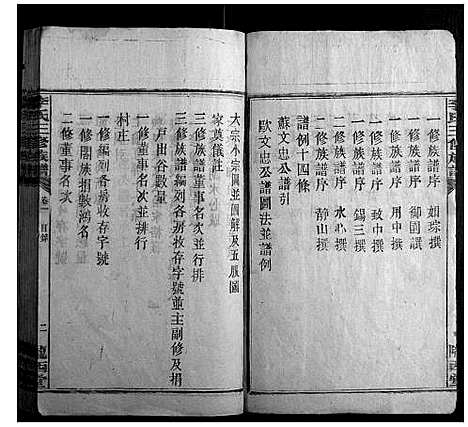 一修族譜序 如琮撰
一修族譜序 御園譔
一修族譜序 用中撰
二修族譜序 錫三撰
二修族譜序 致中撰
二修族譜序 水心撰
二修族譜序 靜山撰
譜例十四條
蘇文忠公譜引
歐文忠公譜圖法並譜例
大宗小宗圖並圖解及五服圖
家奠儀註
三修族譜董事名次並行排
三修族譜編列各房收存字號並主副修及捐
戶出谷數量
一修董事名次並行排
村庄
一修編列各房收存字號
一修闔族捐數鴻名
二修董事名次
李氏三修族譜
卷一 目錄
二
隴西堂
李氏三修族譜
隴西堂